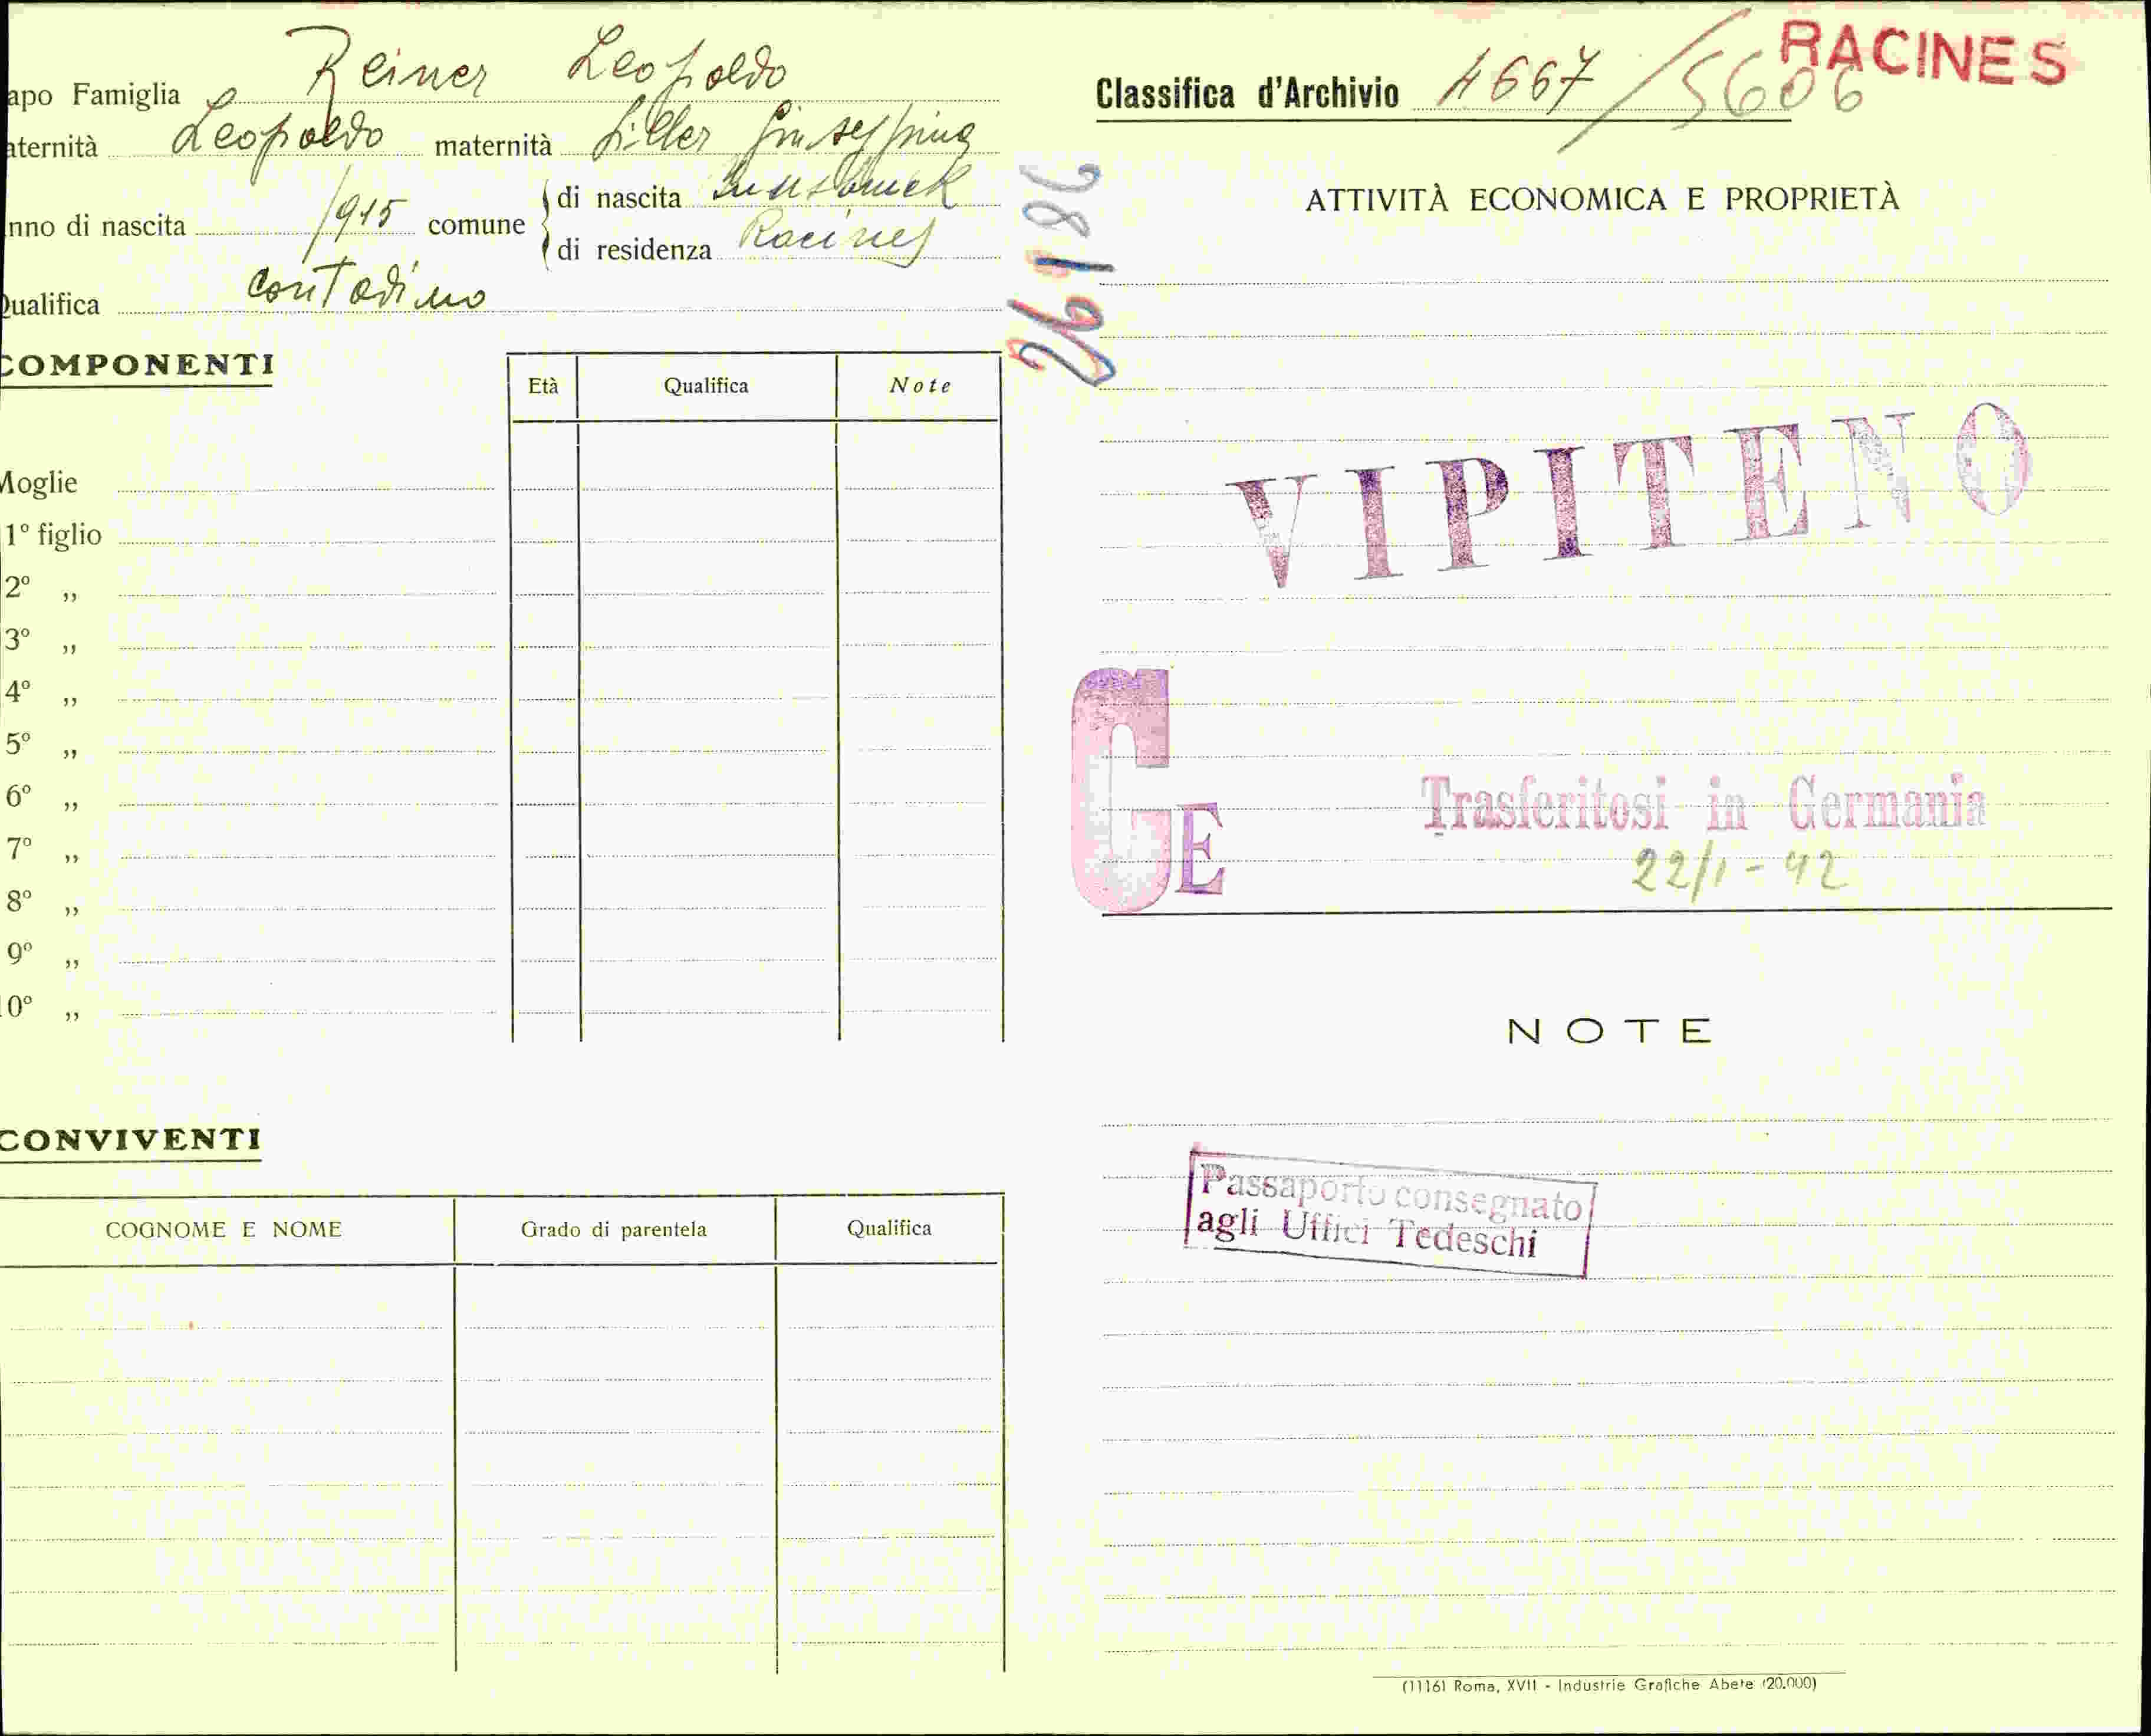 apo Famiglia Reiner Leopoldo
aternità Leopoldo maternità Giuseppina
nno di nascita 1915 comune
di nascita Innsbruck
di residenza Racines
Qualifica contadino
COMPONENTI
Età Qualifica Note
Moglie
1° figlio
2° „
3° „
4° „
5° „
6° „
7° „
8° „
9° „
10° „
CONVIVENTI
COGNOME E NOME Grado di parentela Qualifica
26186
RACINES
Classifica d'Archivio 4667/5606
ATTIVITÀ ECONOMICA E PROPRIETÀ
VIPITENO
GE
Trasferitosi in Germania
22/1-42
NOTE
Passaporto consegnato
agli Uffici Tedeschi
(1116) Roma, XVII - Industrie Grafiche Abete (20.000)